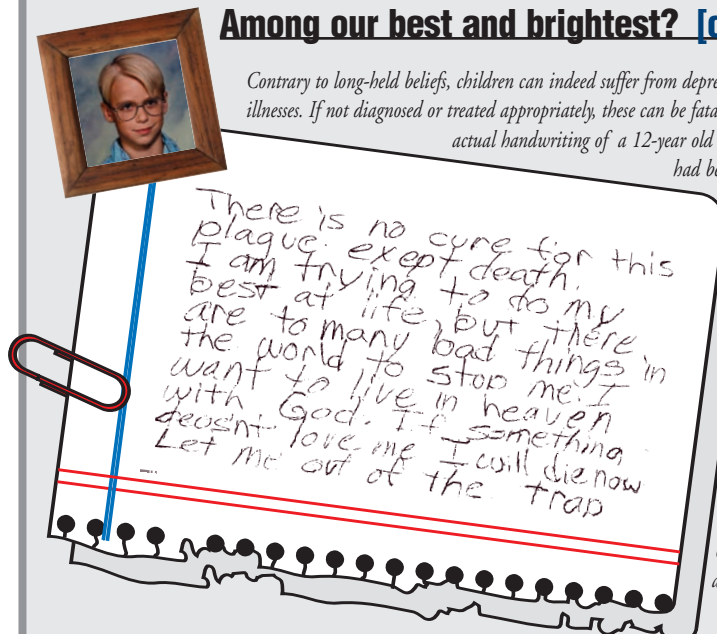 Among our best and brightest?
Contrary to long-held beliefs, children can indeed suffer from
illnesses. If not diagnosed or treated appropriately, these can be
actual handwriting of a 12-year old
had
There is no cure for this
plague. exept death.
I am trying to do my
best at life, but there
are to many bad things in
the world to stop me. I
want to live in heaven
with God. If something
deosnt love me I will die now
Let me out of the trap